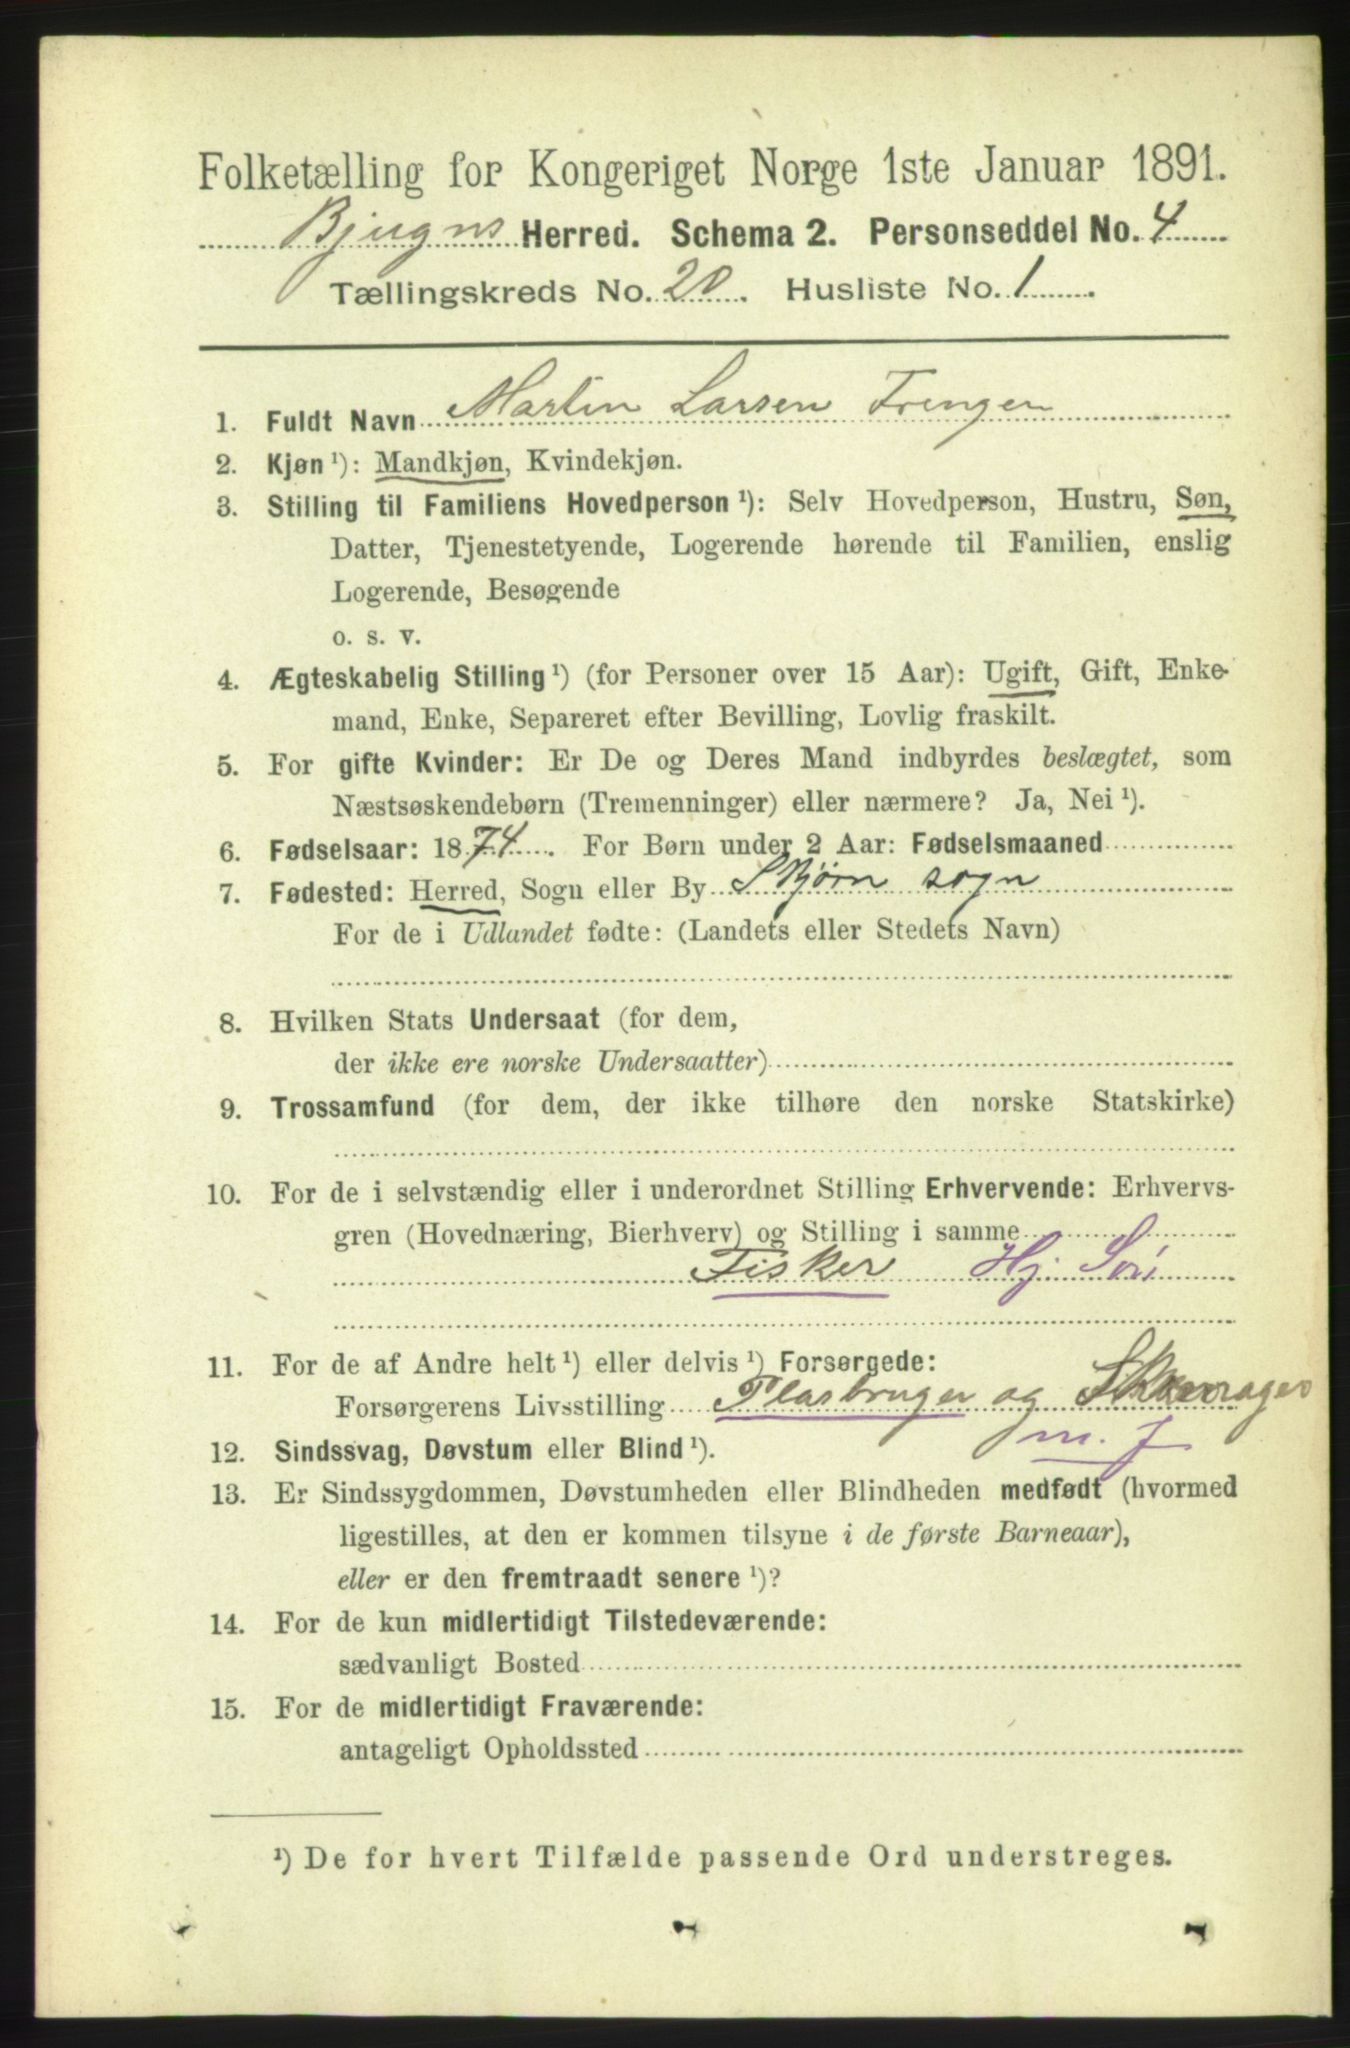 Folketælling for Kongeriget Norge 1ste Januar 1891.
Bjugns Herred. Schema 2. Personseddel No. 4
Tællingskreds No. 20. Husliste No. 1.
1. Fuldt Navn Martin Larsen Frengen
2. Kjøn ¹): Mandkjøn, Kvindekjøn.
3. Stilling til Familiens Hovedperson ¹): Selv Hovedperson, Hustru, Søn,
Datter, Tjenestetyende, Logerende hørende til Familien, enslig
Logerende, Besøgende
o. s. v.
4. Ægteskabelig Stilling ¹) (for Personer over 15 Aar): Ugift, Gift, Enke-
mand, Enke, Separeret efter Bevilling, Lovlig fraskilt.
5. For gifte Kvinder: Er De og Deres Mand indbyrdes beslægtet, som
Næstsøskendebørn (Tremenninger) eller nærmere? Ja, Nei ¹).
6. Fødselsaar: 1874. For Børn under 2 Aar: Fødselsmaaned
7. Fødested: Herred, Sogn eller By Skjørn sogn
For de i Udlandet fødte: (Landets eller Stedets Navn)
8. Hvilken Stats Undersaat (for dem,
der ikke ere norske Undersaatter)
9. Trossamfund (for dem, der ikke tilhøre den norske Statskirke)
10. For de i selvstændig eller i underordnet Stilling Erhvervende: Erhvervs-
gren (Hovednæring, Bierhverv) og Stilling i samme
Fisker Hj. Søn
11. For de af Andre helt ¹) eller delvis ¹) Forsørgede:
Forsørgerens Livsstilling Plasbruger og
m. J
12. Sindssvag, Døvstum eller Blind ¹).
13. Er Sindssygdommen, Døvstumheden eller Blindheden medfødt (hvormed
ligestilles, at den er kommen tilsyne i de første Barneaar),
eller er den fremtraadt senere ¹)?
14. For de kun midlertidigt Tilstedeværende:
sædvanligt Bosted
15. For de midlertidigt Fraværende:
antageligt Opholdssted
¹) De for hvert Tilfælde passende Ord understreges.